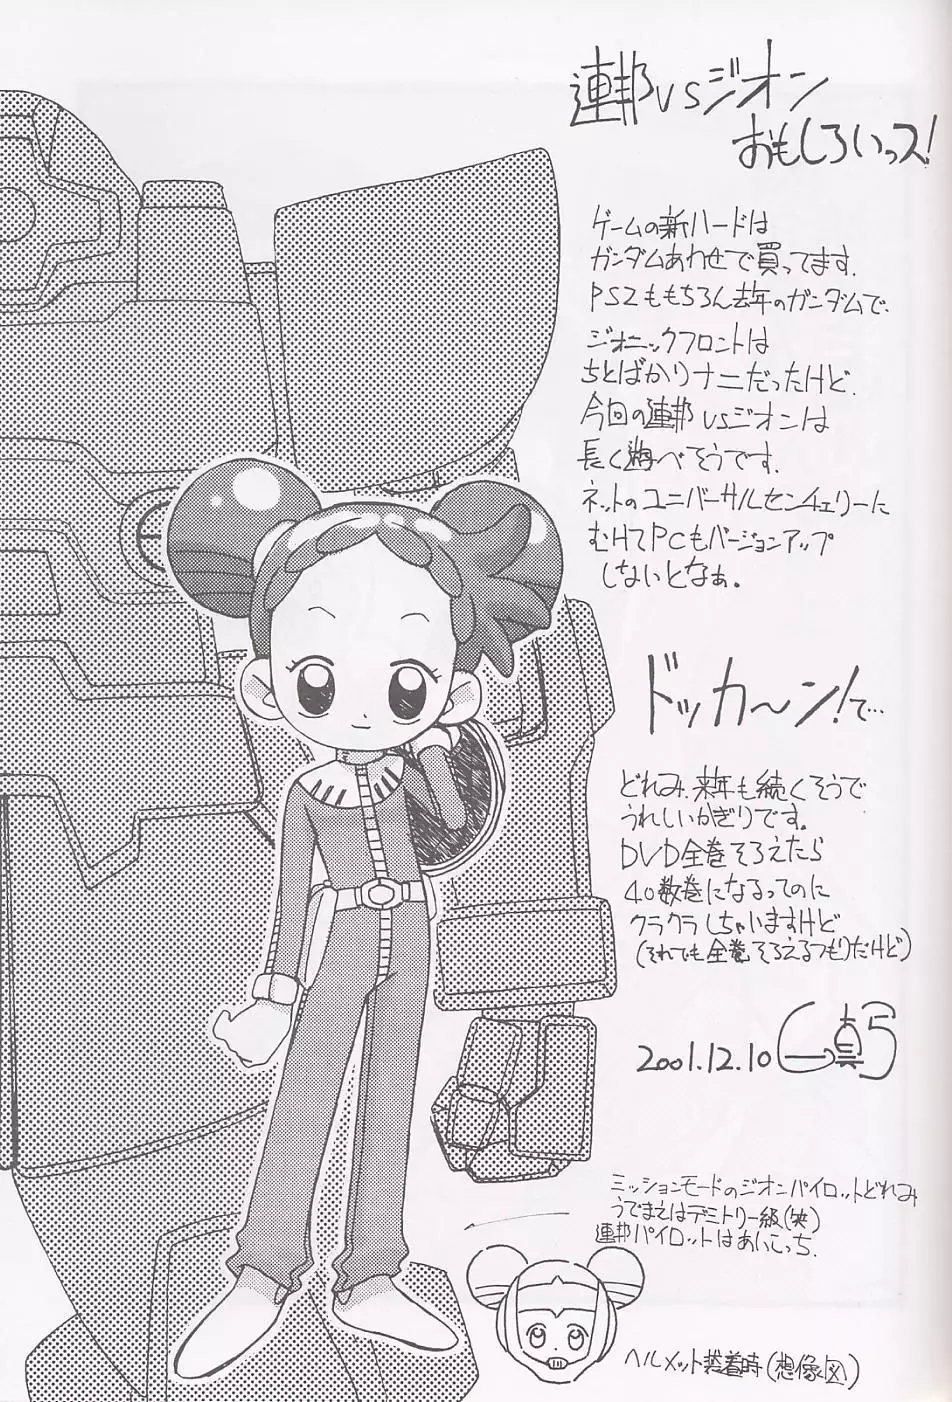 連邦vsジオン
おもしろいっス!
ゲームの新ハードは
ガンダムあわせで買ってます.
PS2ももちろん去年のガンダムで.
ジオニックフロントは
ちとばかりナニだったけど.
今回の連邦vsジオンは
長く遊べそうです.
ネットのユニバーサルセンチュリーに
むけてPCもバージョンアップ
しないとなぁ.
ドッカ〜ン!で…
どれみ.来年も続くそうで
うれしいかぎりです。
DVD全巻そろえたら
40数巻になるってのに
クラクラしちゃいますけど
(それでも全巻そろえるつもりだけど)
2001.12.10
ミッションモードのジオンパイロットどれみ
うでまえはデミトリー級(笑)
連邦パイロットはあいこっち.
ヘルメット装着時(想像図)